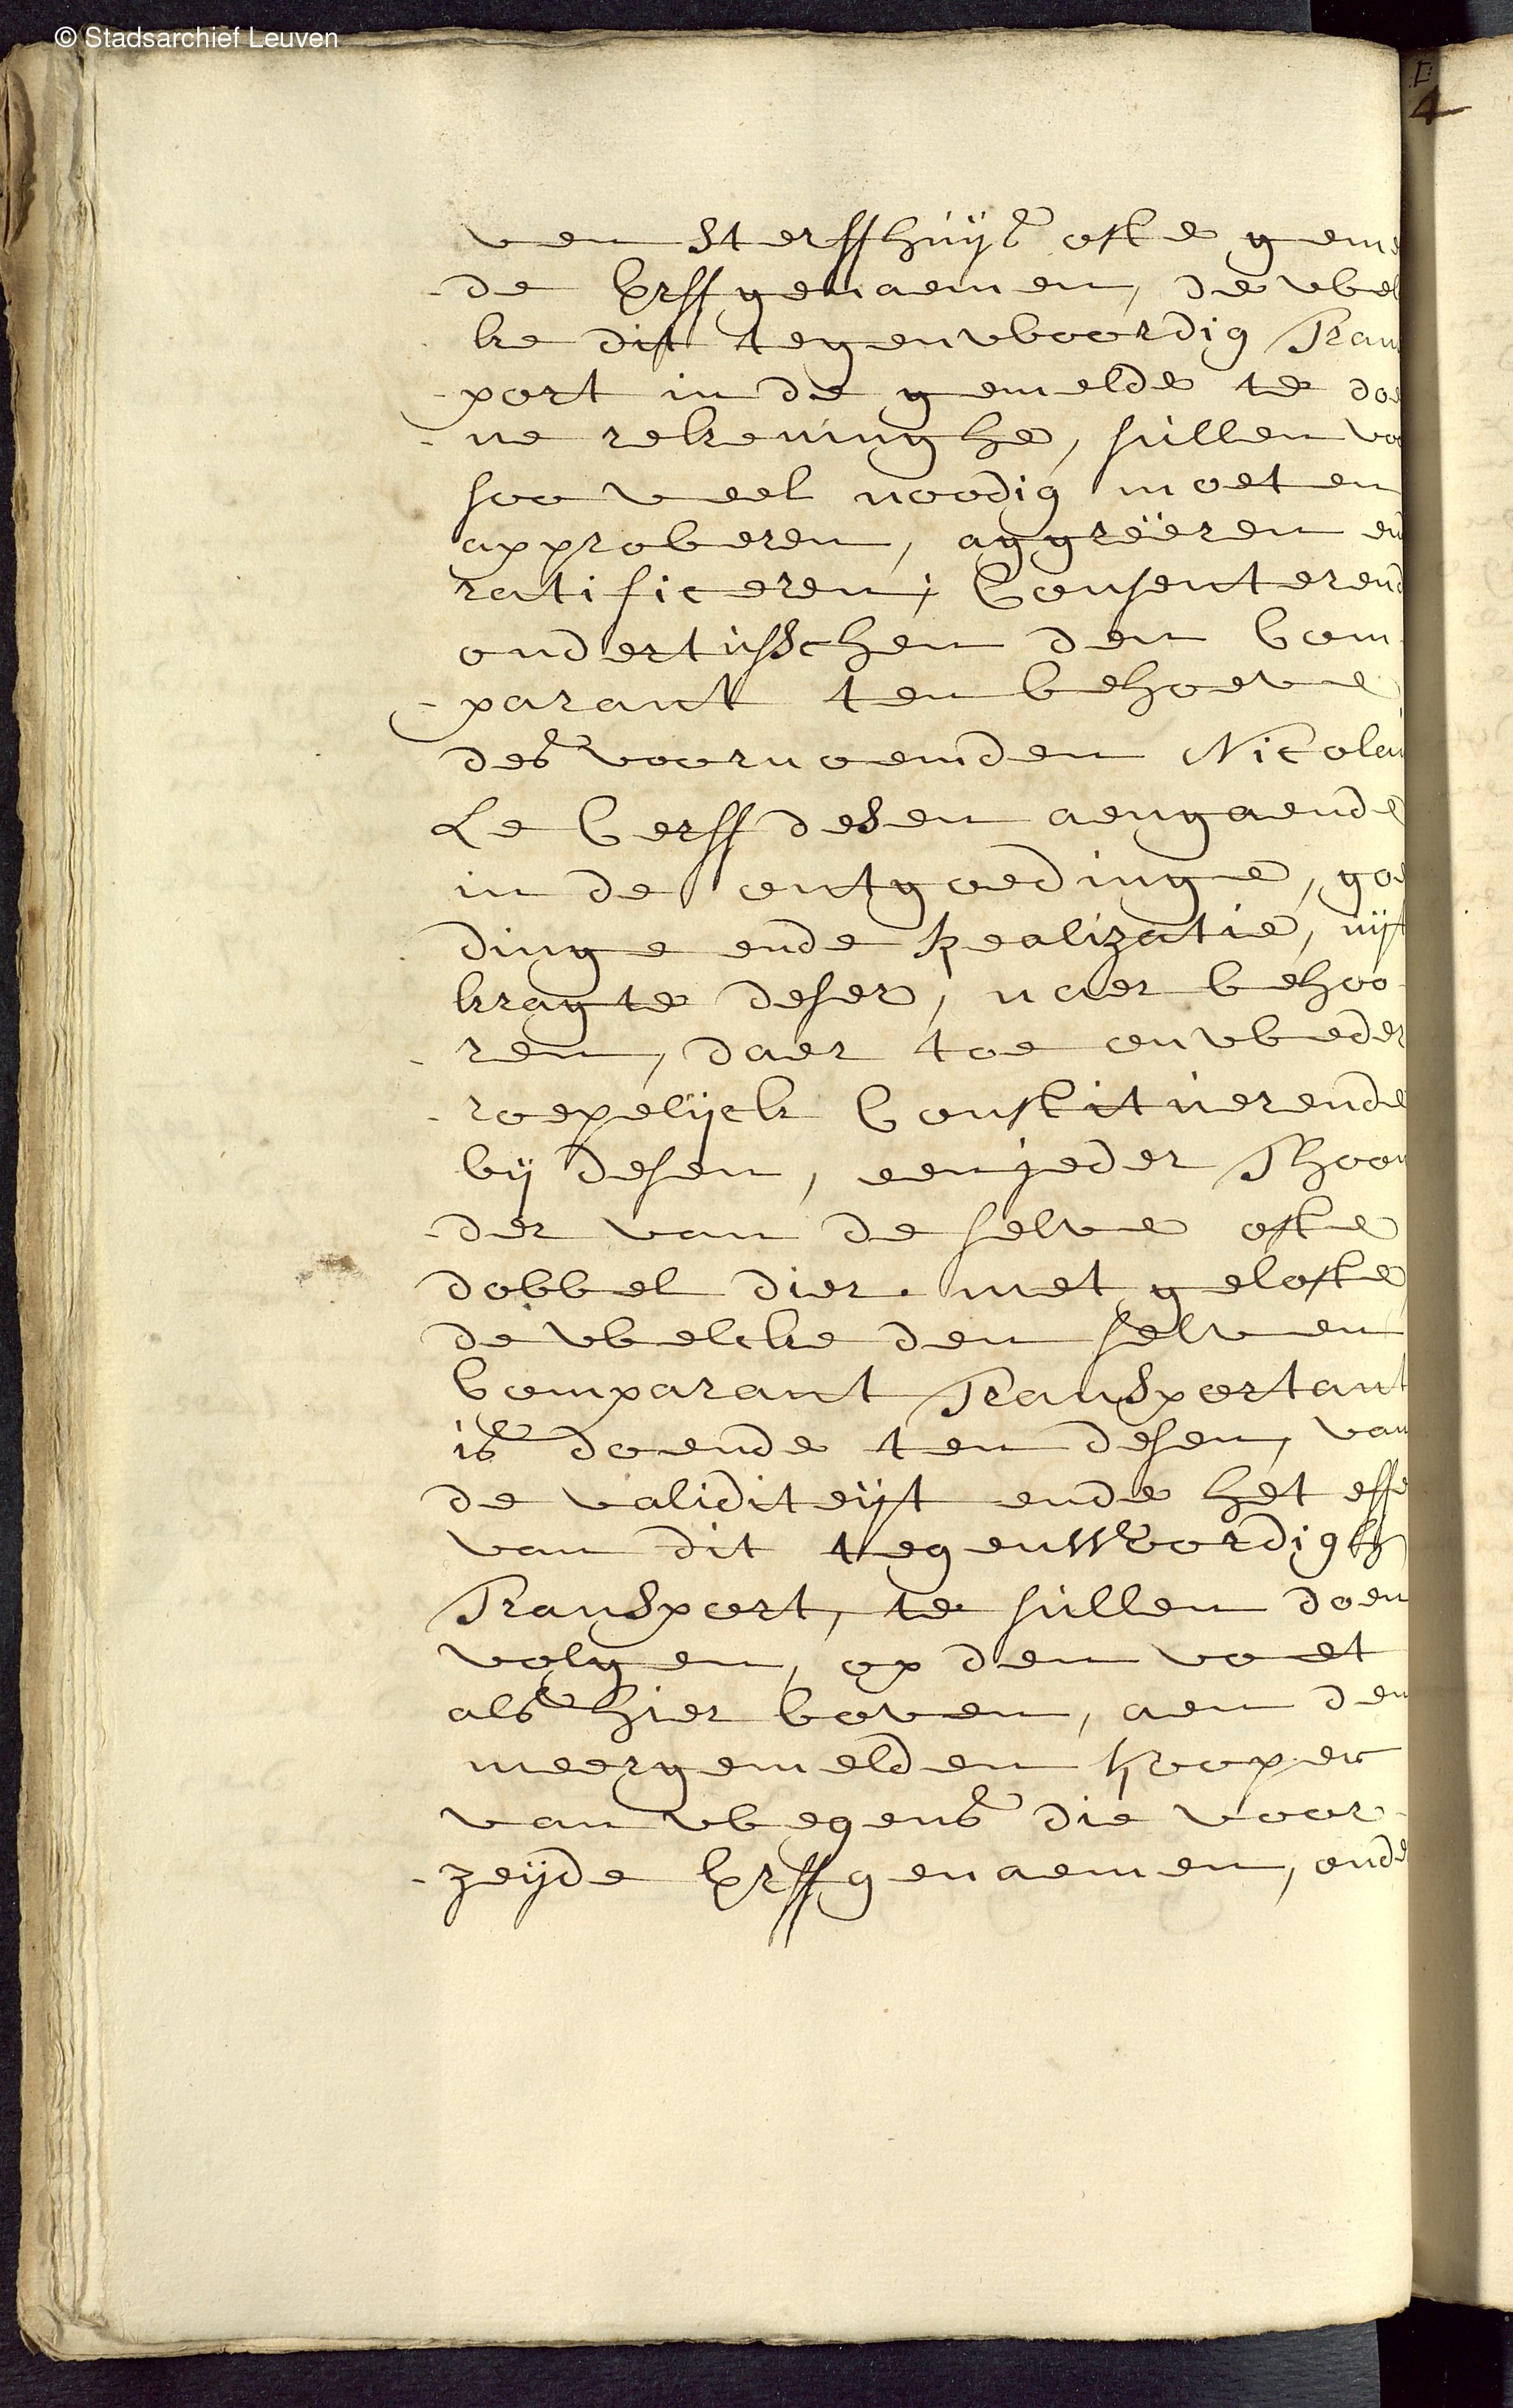 © Stadsarchief Leuven
ven Sterffhuijs ofte geme
de Erffgenaemen, dewel
ke dit tegenwoordig Trans
port in de gemelde te doe
ne rekeninghe, sullen vo
soo veel noodig moeten
approberen, aggreëren end
ratificeren; Consenterend
ondertusschen den Com
parant ten behoeve
des voornoemden Nicolai
Le Cerff desen aengaende
in de ontgoedinge, goe
dinge ende Realizatie, uijt
kragte deser, naer behoo
ren, daer toe onweder
roepelijck Constituerende
bij desen, een jeder Thoon
der van de selve ofte
dobbel dier. met gelofte
dewelcke den selven
Comparant Transportant
is doende ten desen, van
de validiteijt ende het effe
van dit tegenwoordigh
Transport, te sullen doen
volgen, op den voet
als hier boven, aen den
meergemelden Kooper
van wegens die voor
zeijde Erffgenaemen, onde
4